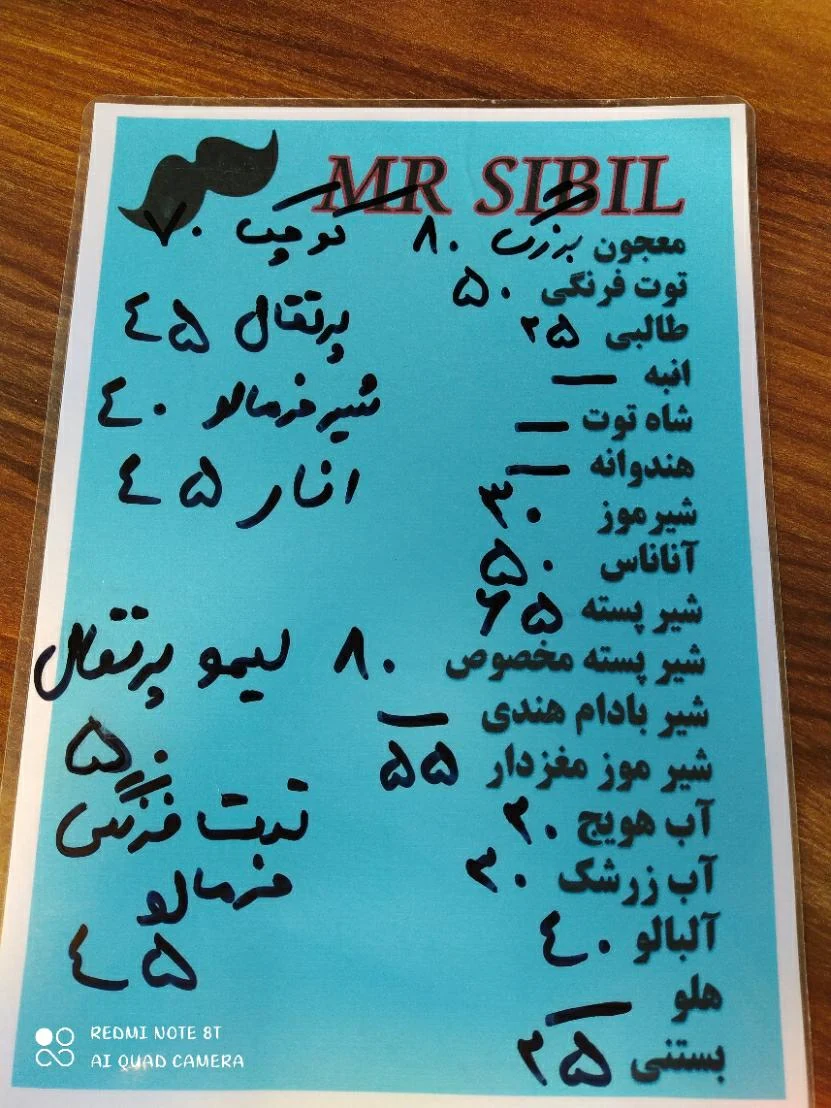 MR SIBIL
معجون بزرگ ۸۰ کوچک ۷۰
توت فرنگی ۵۰
پرتقال ۴۵
طالبی ۲۵
انبه —
شیر خرمالو ۴۰
شاه توت —
هندوانه —
انار ۴۵
شیرموز ۳۰
آناناس ۵۰
شیر پسته ۶۵
شیر پسته مخصوص ۸۰
لیمو پرتقال ۵۰
شیر بادام هندی —
شیر موز مغزدار ۵۵
آب هویج ۲۰
توت فرنگی
خرمالو
۴۵
آب زرشک ۳۰
آلبالو ۴۰
هلو —
بستنی ۲۵
REDMI NOTE 8T
AI QUAD CAMERA